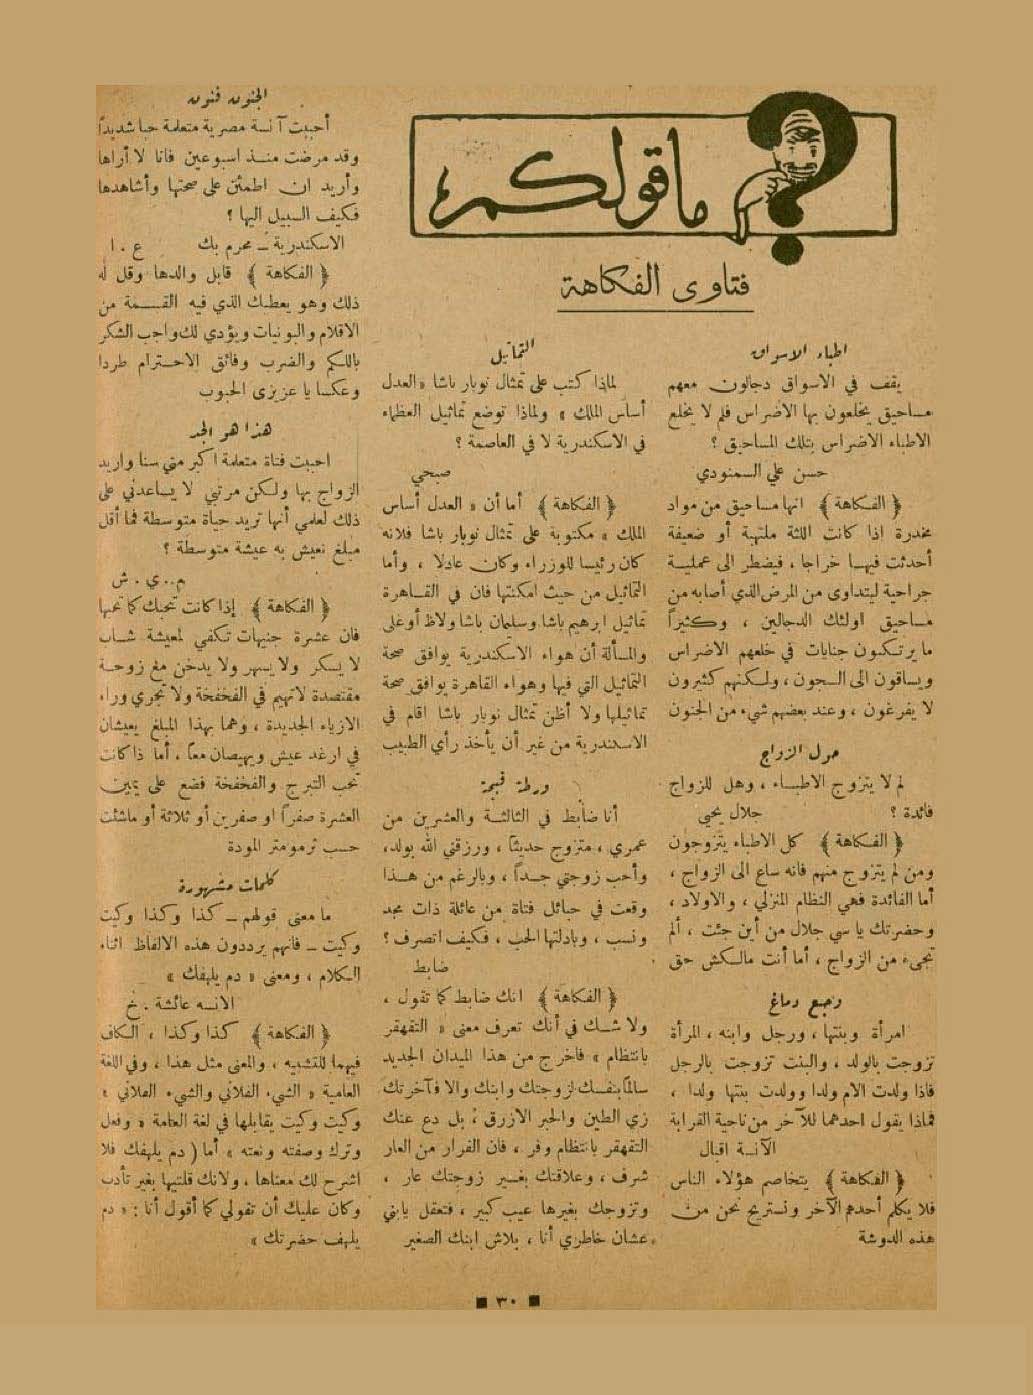 ما قولكم
فتاوى الفكاهة
اطباء الاسواق
يقف في الاسواق دجالون معهم
مساحيق يخلعون بها الاضراس فلم لا يخلع
الاطباء الاضراس بتلك المساحيق ؟
حسن علي السمنودي
﴿ الفكاهة ﴾ انها مساحيق من مواد
مخدرة اذا كانت اللثة ملتهبة أو ضعيفة
أحدثت فيها خراجا ، فيضطر الى عملية
جراحية ليتداوى من المرض الذي أصابه من
مساحيق اولئك الدجالين ، وكثيراً
ما يرتكبون جنايات في خلعهم الاضراس
ويساقون الى السجون ، ولكنهم كثيرون
لا يفرغون ، وعند بعضهم شيء من الجنون
حول الزواج
لم لا يتزوج الاطباء ، وهل للزواج
فائدة ؟ جلال يحيى
﴿ الفكاهة ﴾ كل الاطباء يتزوجون
ومن لم يتزوج منهم فانه ساع الى الزواج ،
أما الفائدة فهي النظام المنزلي ، والاولاد ،
وحضرتك يا سي جلال من أين جئت ، ألم
تجيء من الزواج ، أما أنت مالكش حق
وجع دماغ
امرأة وبنتها ، ورجل وابنه ، المرأة
تزوجت بالولد ، والبنت تزوجت بالرجل
فاذا ولدت الام ولدا وولدت بنتها ولدا ،
فماذا يقول احدهما للآخر من ناحية القرابة
الآنسة اقبال
﴿ الفكاهة ﴾ يتخاصم هؤلاء الناس
فلا يكلم أحدهم الآخر ونستريح نحن من
هذه الدوشة
التماثيل
لماذا كتب على تمثال نوبار باشا « العدل
أساس الملك » ولماذا توضع تماثيل العظماء
في الاسكندرية لا في العاصمة ؟
صبحي
﴿ الفكاهة ﴾ أما أن « العدل أساس
الملك » مكتوبة على تمثال نوبار باشا فلانه
كان رئيسا للوزراء وكان عادلا ، وأما
التماثيل من حيث امكنتها فان في القاهرة
تماثيل ابرهيم باشا وسليمان باشا ولاظ أوغلى
والمسألة أن هواء الاسكندرية يوافق صحة
التماثيل التي فيها وهواء القاهرة يوافق صحة
تماثيلها ولا أظن تمثال نوبار باشا اقام في
الاسكندرية من غير أن يأخذ رأي الطبيب
ورطة قبيحة
أنا ضابط في الثالثة والعشرين من
عمري ، متزوج حديثا ، ورزقني الله بولد،
وأحب زوجتي جداً ، وبالرغم من هذا
وقعت في حبائل فتاة من عائلة ذات مجد
ونسب ، وبادلتها الحب ، فكيف اتصرف ؟
ضابط
﴿ الفكاهة ﴾ انك ضابط كما تقول ،
ولا شك في أنك تعرف معنى « التقهقر
بانتظام » فاخرج من هذا الميدان الجديد
سالما بنفسك لزوجتك وابنك والا فآخرتك
زي الطين والحبر الازرق ، بل دع عنك
التقهقر بانتظام وفر ، فان الفرار من العار
شرف ، وعلاقتك بغير زوجتك عار ،
وتزوجك بغيرها عيب كبير ، فتعقل يابني
عشان خاطري أنا ، بلاش ابنك الصغير
الجنون فنون
أحببت آنسة مصرية متعلمة حبا شديداً
وقد مرضت منذ اسبوعين فانا لا أراها
وأريد ان اطمئن على صحتها وأشاهدها
فكيف السبيل اليها ؟
الاسكندرية ـ محرم بك ع . ا
﴿ الفكاهة ﴾ قابل والدها وقل له
ذلك وهو يعطيك الذي فيه القسمة من
الاقلام والبونيات ويؤدي لك واجب الشكر
باللكم والضرب وفائق الاحترام طردا
وعكسا يا عزيزى الحبوب
هذا هو الجد
احببت فتاة متعلمة اكبر مني سنا واريد
الزواج بها ولكن مرتبي لا يساعدني على
ذلك لعلمي أنها تريد حياة متوسطة فما أقل
مبلغ نعيش به عيشة متوسطة ؟
م . ي . ش
﴿ الفكاهة ﴾ إذا كانت تحبك كما تحبها
فان عشرة جنيهات تكفي لمعيشة شاب
لا يسكر ولا يسهر ولا يدخن مع زوجة
مقتصدة لا تهيم في الفخفخة ولا تجري وراء
الازياء الجديدة ، وهما بهذا المبلغ يعيشان
في ارغد عيش ويهيصان معا ، أما ذا كانت
تحب التبرج والفخفخة فضع على يمين
العشرة صفراً او صفرين أو ثلاثة أو ماشئت
حسب ترمومتر المودة
كلمات مشهورة
ما معنى قولهم ـ كذا وكذا وكيت
وكيت ـ فانهم يرددون هذه الالفاظ اثناء
الكلام ، ومعنى « دم يلهفك »
الانسه عائشة . خ
﴿ الفكاهة ﴾ كذا وكذا ، الكاف
فيهما للتشبيه ، والمعنى مثل هذا ، وفي اللغة
العامية « الشيء الفلاني والشيء الفلاني »
وكيت وكيت يقابلها في لغة العامة « وفعل
وترك وصفته ونعته » أما ( دم يلهفك فلا
اشرح لك معناها ، ولانك قلتيها بغير تأدب
وكان عليك أن تقولي كما أقول أنا : « دم
يلهف حضرتك »
٣٠